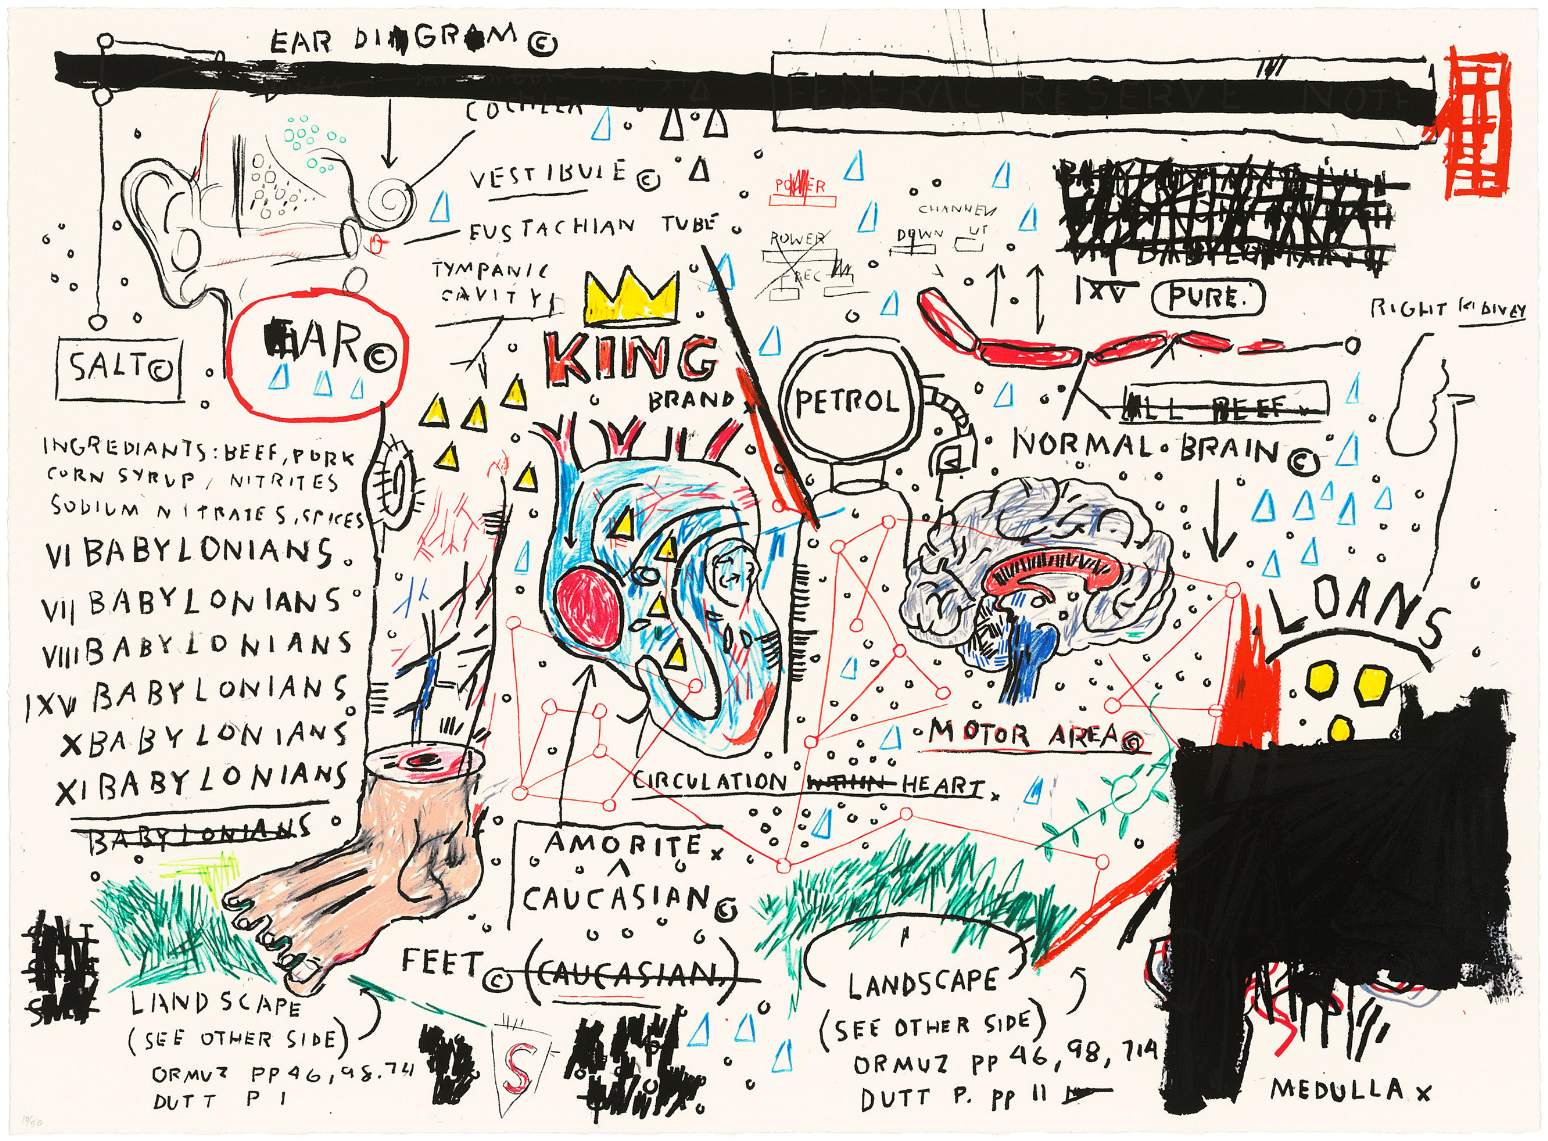 EAR DIAGRAM ©
FEDERAL RESERVE NOTE
COCHLEA
VESTIBULE ©
EUSTACHIAN TUBE
TYMPANIC
CAVITY
POWER
CHANNEL
POWER
DOWN
UP
REC
BABYLONIANS
IXV
PURE.
RIGHT KIDNEY
SALT©
EAR©
KING
BRAND
PETROL
ALL BEEF
NORMAL BRAIN ©
INGREDIANTS: BEEF, PORK
CORN SYRUP / NITRITES
SODIUM NITRATES, SPICES
VI BABYLONIANS
VII BABYLONIANS
VIII BABYLONIANS
IXV BABYLONIANS
X BABYLONIANS
XI BABYLONIANS
BABYLONIANS
LOANS
MOTOR AREA©
CIRCULATION WITHIN HEART
AMORITE x
CAUCASIAN ©
FEET © (CAUCASIAN)
LANDSCAPE
(SEE OTHER SIDE)
ORMUZ PP 46, 98.74
DUTT P 1
S
LANDSCAPE
(SEE OTHER SIDE)
ORMUZ PP 46, 98, 714
DUTT P. PP 11
MEDULLA x
19/50